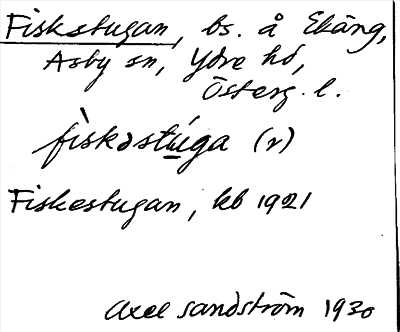 Fiskstugan, bs. å Ekäng,
Asby sn, Ydre hd,
Österg. l.
fìskəstúga (r)
Fiskestugan, kb 1921
Axel Sandström 1930